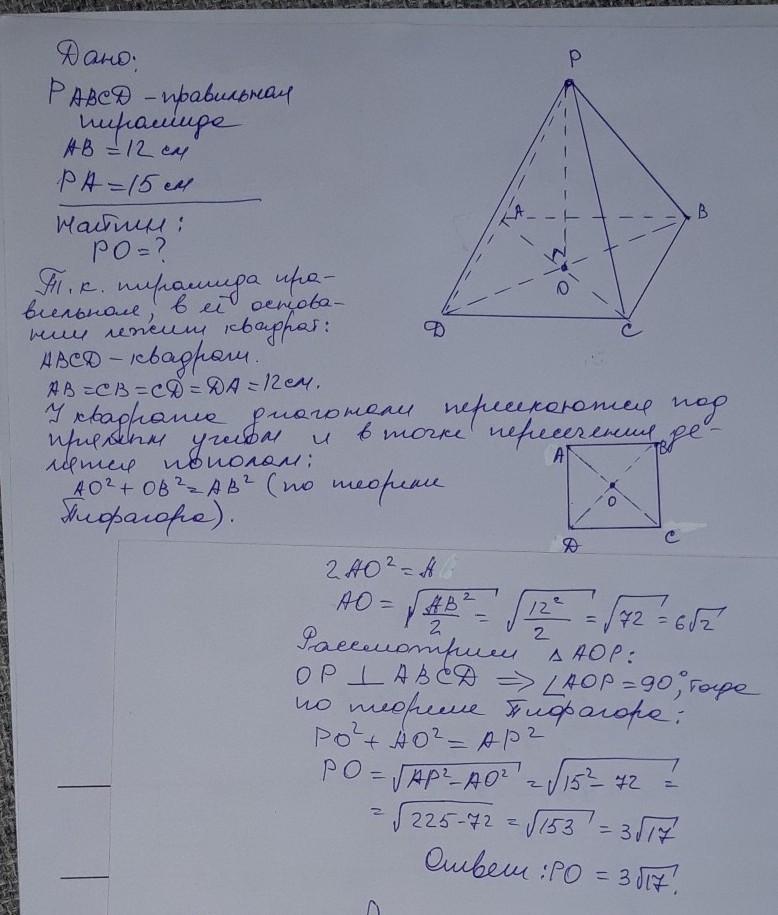 Дано:
PABCD – правильная
пирамида
AB = 12 см
PA = 15 см
Найти:
PO = ?
Т. к. пирамида пра-
вильная, в её основа-
нии лежит квадрат:
ABCD – квадрат.
AB = CB = CD = DA = 12 см.
У квадрата диагонали пересекаются под
прямым углом и в точке пересечения де-
лятся пополам:
AO² + OB² = AB² (по теореме
Пифагора).
P
A
B
O
D
C
A
B
O
D
C
2AO² = A
AO = √(AB²/2) = √(12²/2) = √72 = 6√2
Рассмотрим △AOP:
OP ⊥ ABCD ⇒ ∠AOP = 90°, тогда
по теореме Пифагора:
PO² + AO² = AP²
PO = √(AP² – AO²) = √(15² – 72) =
= √(225-72) = √153 = 3√17
Ответ: PO = 3√17.